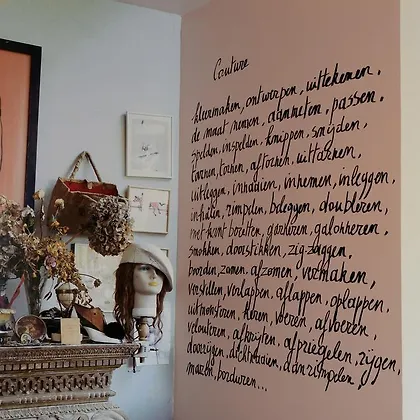 Couture
kleermaken, ontwerpen, uittekenen,
de maat nemen, aanmeten, passen,
spelden, inspelden, knippen, snijden,
tornen, aftornen, uittornen,
uitleggen, innaaien, innemen, inleggen,
inhalen, rimpelen, beleggen, doubleren,
met kant boretten, garneren, galonneren,
smokken, doorstikken, zig-zaggen,
boorden, zomen, afzomen, vermaken,
verstellen, verlappen, aflappen, oplappen,
uitmonsteren, keren, voeren, afvoeren,
velouteren, afkrijten, afspiegelen, rijgen,
doorrijgen, dichtnaaien, aanrimpelen
mazen, borduren...